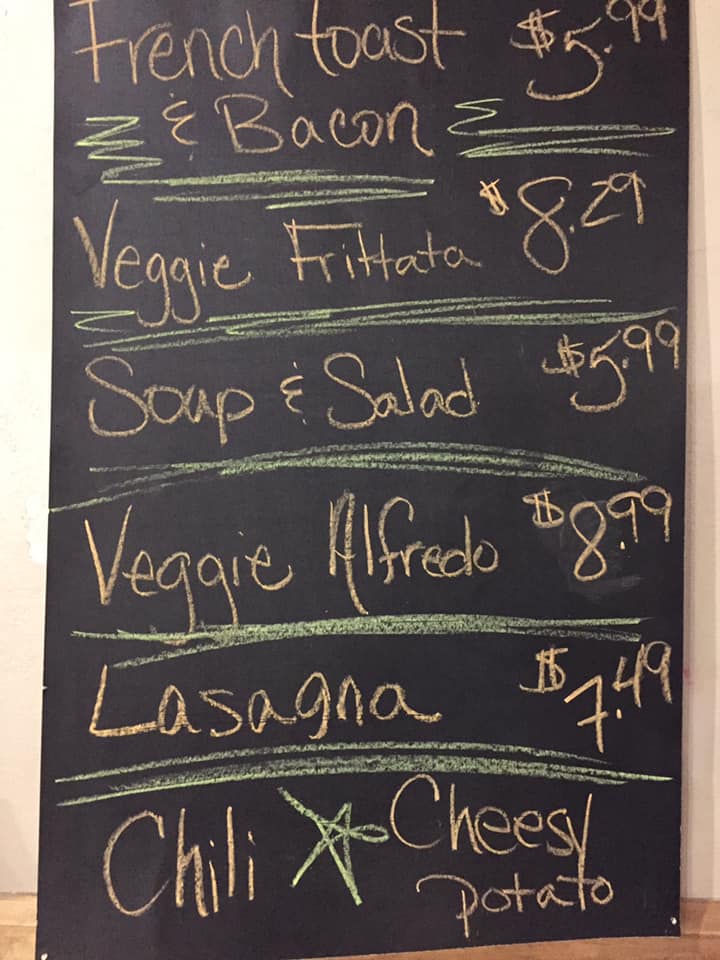 French toast $5.99
& Bacon
Veggie Frittata $8.29
Soup & Salad $5.99
Veggie Alfredo $8.99
Lasagna $7.49
Chili Cheesy
potato